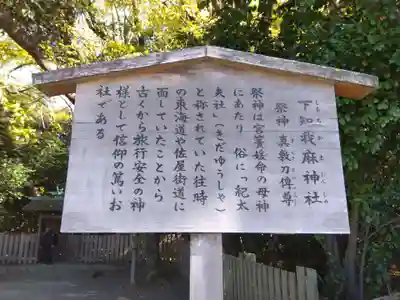 しもちかまじんじゃ
下知我麻神社
祭神 真敷刀俾尊
祭神は宮簀媛命の母神
にあたり 俗に「紀太
夫社」（きだゆうしゃ）
と称されていた往時
の東海道や佐屋街道に
面していたことから
古くから旅行安全の神
様として信仰の篤いお
社である